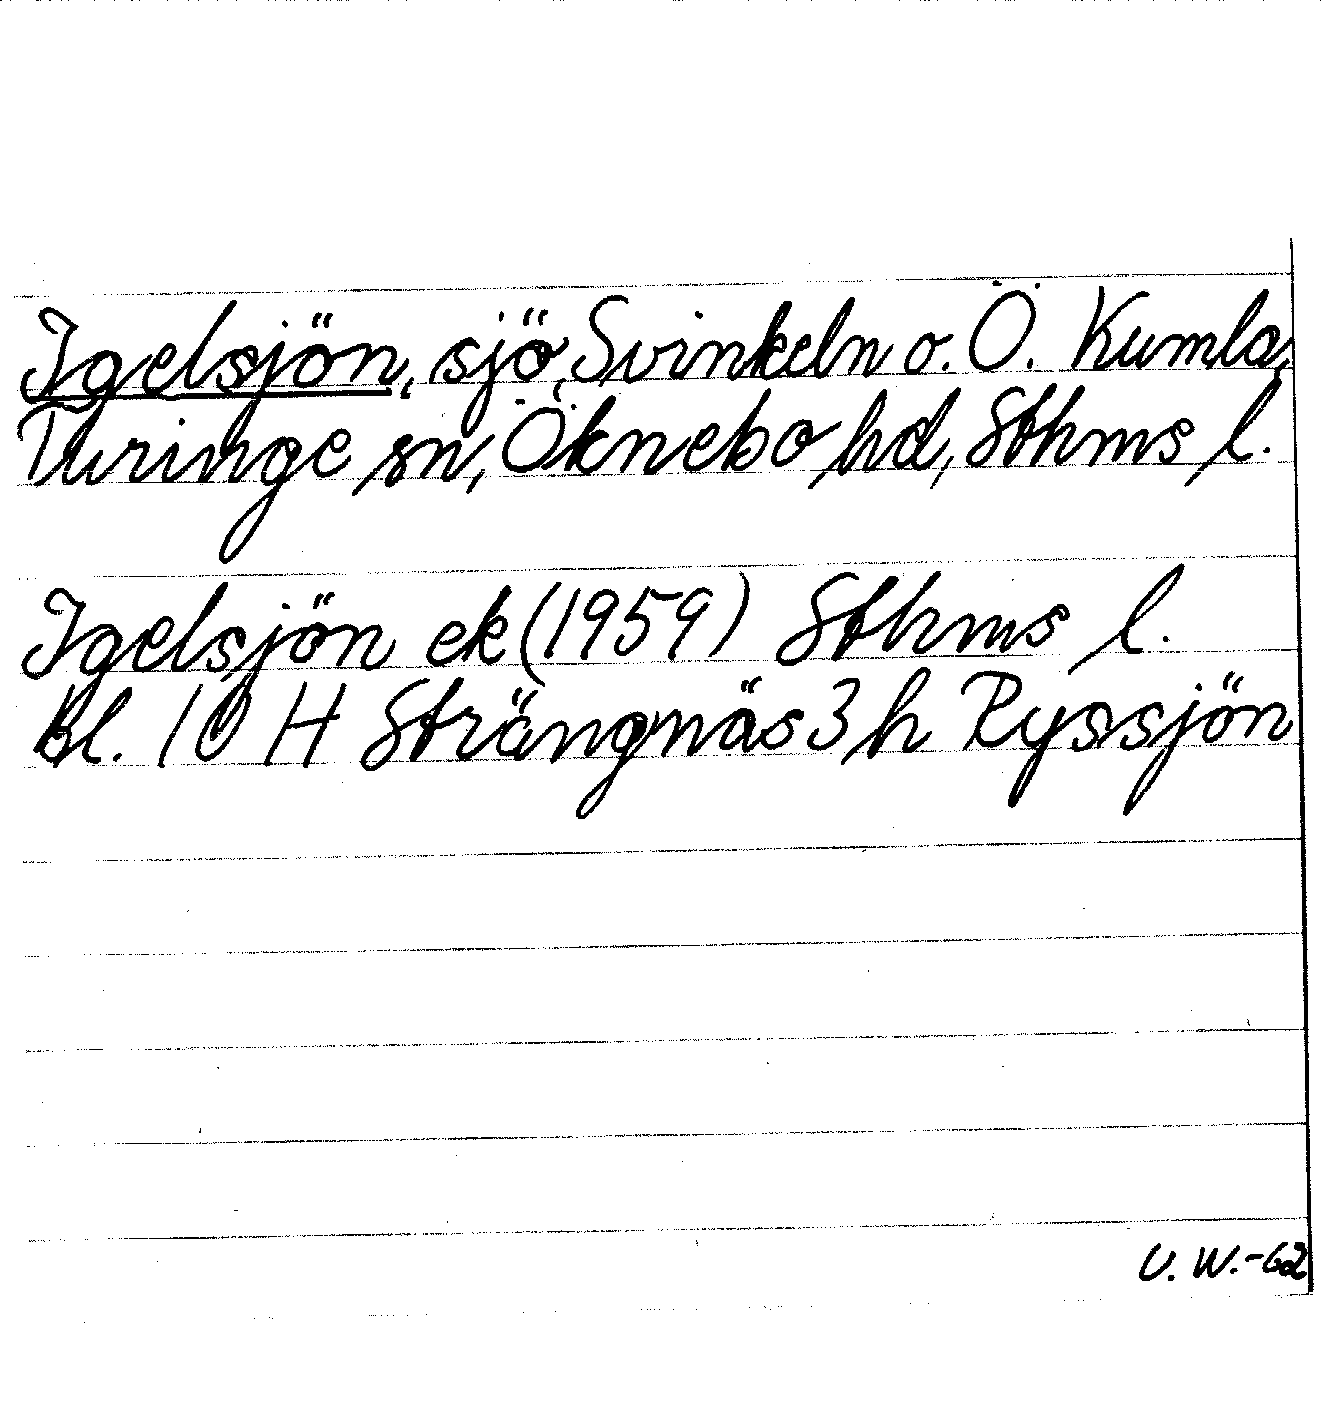 Igelsjön, sjö, Svinkeln o. Ö. Kumla,
Turinge sn, Öknebo hd, Sthms l.
Igelsjön ek (1959) Sthms l.
Bl. 10 H Strängnäs 3 h Ryssjön
U. W.-62